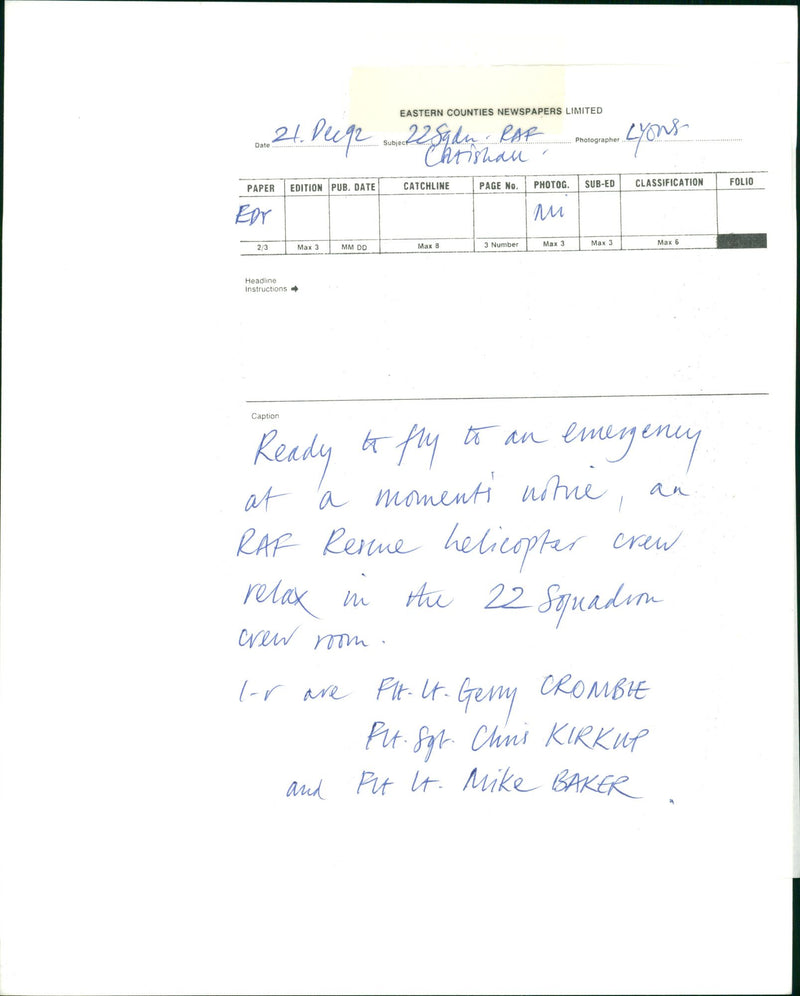 EASTERN COUNTIES NEWSPAPERS LIMITED
Date 21. Dec 92 Subject 22 Sqdn. RAF Photographer LYONS
PAPER EDITION PUB. DATE CATCHLINE PAGE No. PHOTOG. SUB-ED CLASSIFICATION FOLIO
EDP
2/3 Max 3 MM DD Max 8 3 Number Max 3 Max 3 Max 6
Headline
Instructions ➔
Caption
Ready to fly to an emergency
at a moment's notice, an
RAF Rescue helicopter crew
relax in the 22 Squadron
crew room.
l-r are Flt. Lt. Gerry CROMBIE
Flt. Sgt. Chris KIRKUP
and Flt Lt. Mike BAKER.